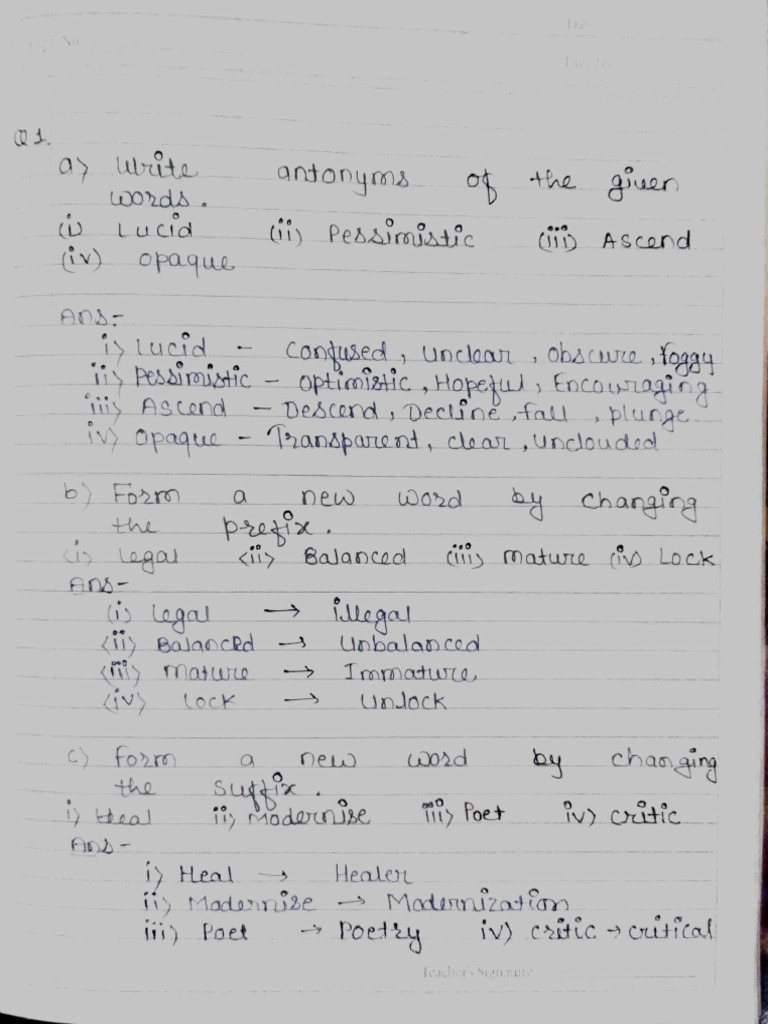 Q1.
a) Write antonyms of the given
words.
(i) Lucid (ii) Pessimistic (iii) Ascend
(iv) opaque
Ans:-
i) Lucid - Confused, unclear, obscure, foggy
ii) Pessimistic - optimistic, Hopeful, Encouraging
iii) Ascend - Descend, Decline, fall, plunge
iv) opaque - Transparent, clear, unclouded
b) Form a new word by changing
the prefix.
(i) legal (ii) Balanced (iii) mature (iv) Lock
Ans-
(i) legal → illegal
(ii) Balanced → Unbalanced
(iii) mature → Immature
(iv) Lock → Unlock
c) Form a new word by changing
the suffix.
i) Heal ii) Modernise iii) Poet iv) critic
Ans-
i) Heal → Healer
ii) Modernize → Modernization
iii) Poet → Poetry iv) critic → critical
Teacher's Signature